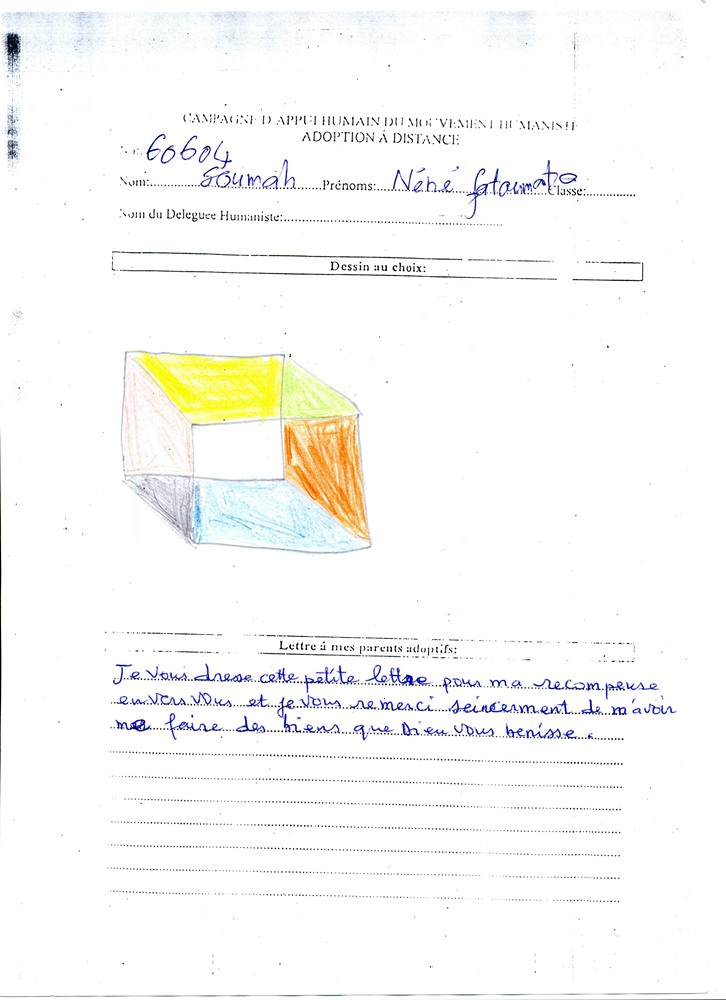 CAMPAGNE D'APPUI HUMAIN DU MOUVEMENT HUMANISTE
ADOPTION À DISTANCE
No: 60604
Nom: Soumah Prénoms: Néné fatoumata Classe:
Nom du Deleguee Humaniste:
Dessin au choix:
Lettre á mes parents adoptifs:
Je vous dresse cette petite lettre pour ma recompense
envers vous et je vous remerci seincerment de m'avoir
me faire des biens que Dieu vous benisse.